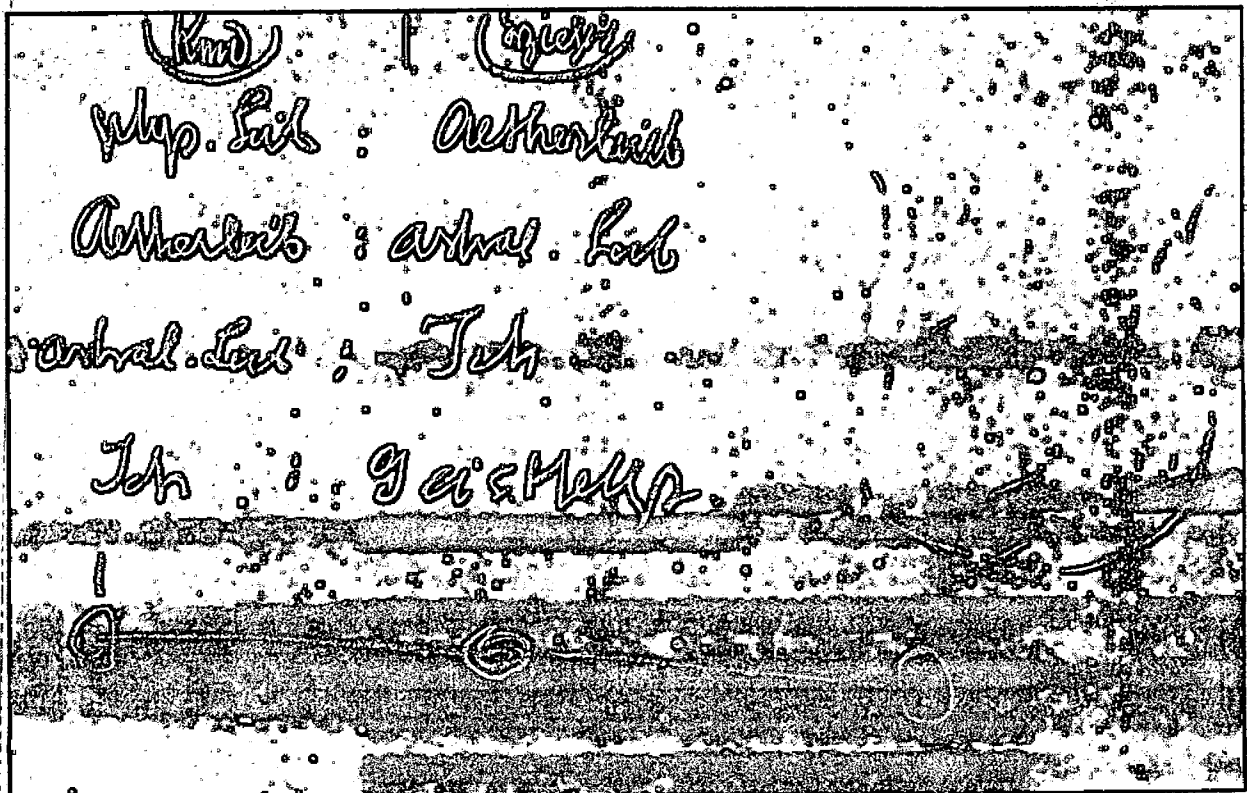 Kind | Erzieher
phys. Leib : Aetherleib
Aetherleib : astral. Leib
astral. Leib : Ich
Ich : Geistselbst